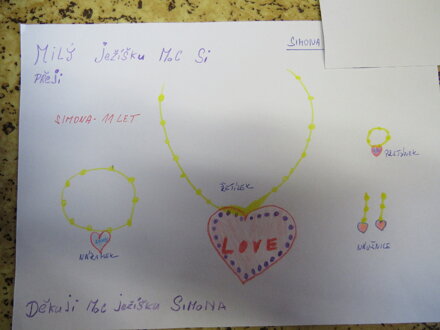 MILÝ JEŽÍŠKU MOC SI
PŘEJI
SIMONA
SIMONA - 11 LET
PRSTÝNEK
ŘETÍZEK
LOVE
NÁRAMEK
NÁUŠNICE
DĚKUJI MOC JEŽÍŠKU SIMONA